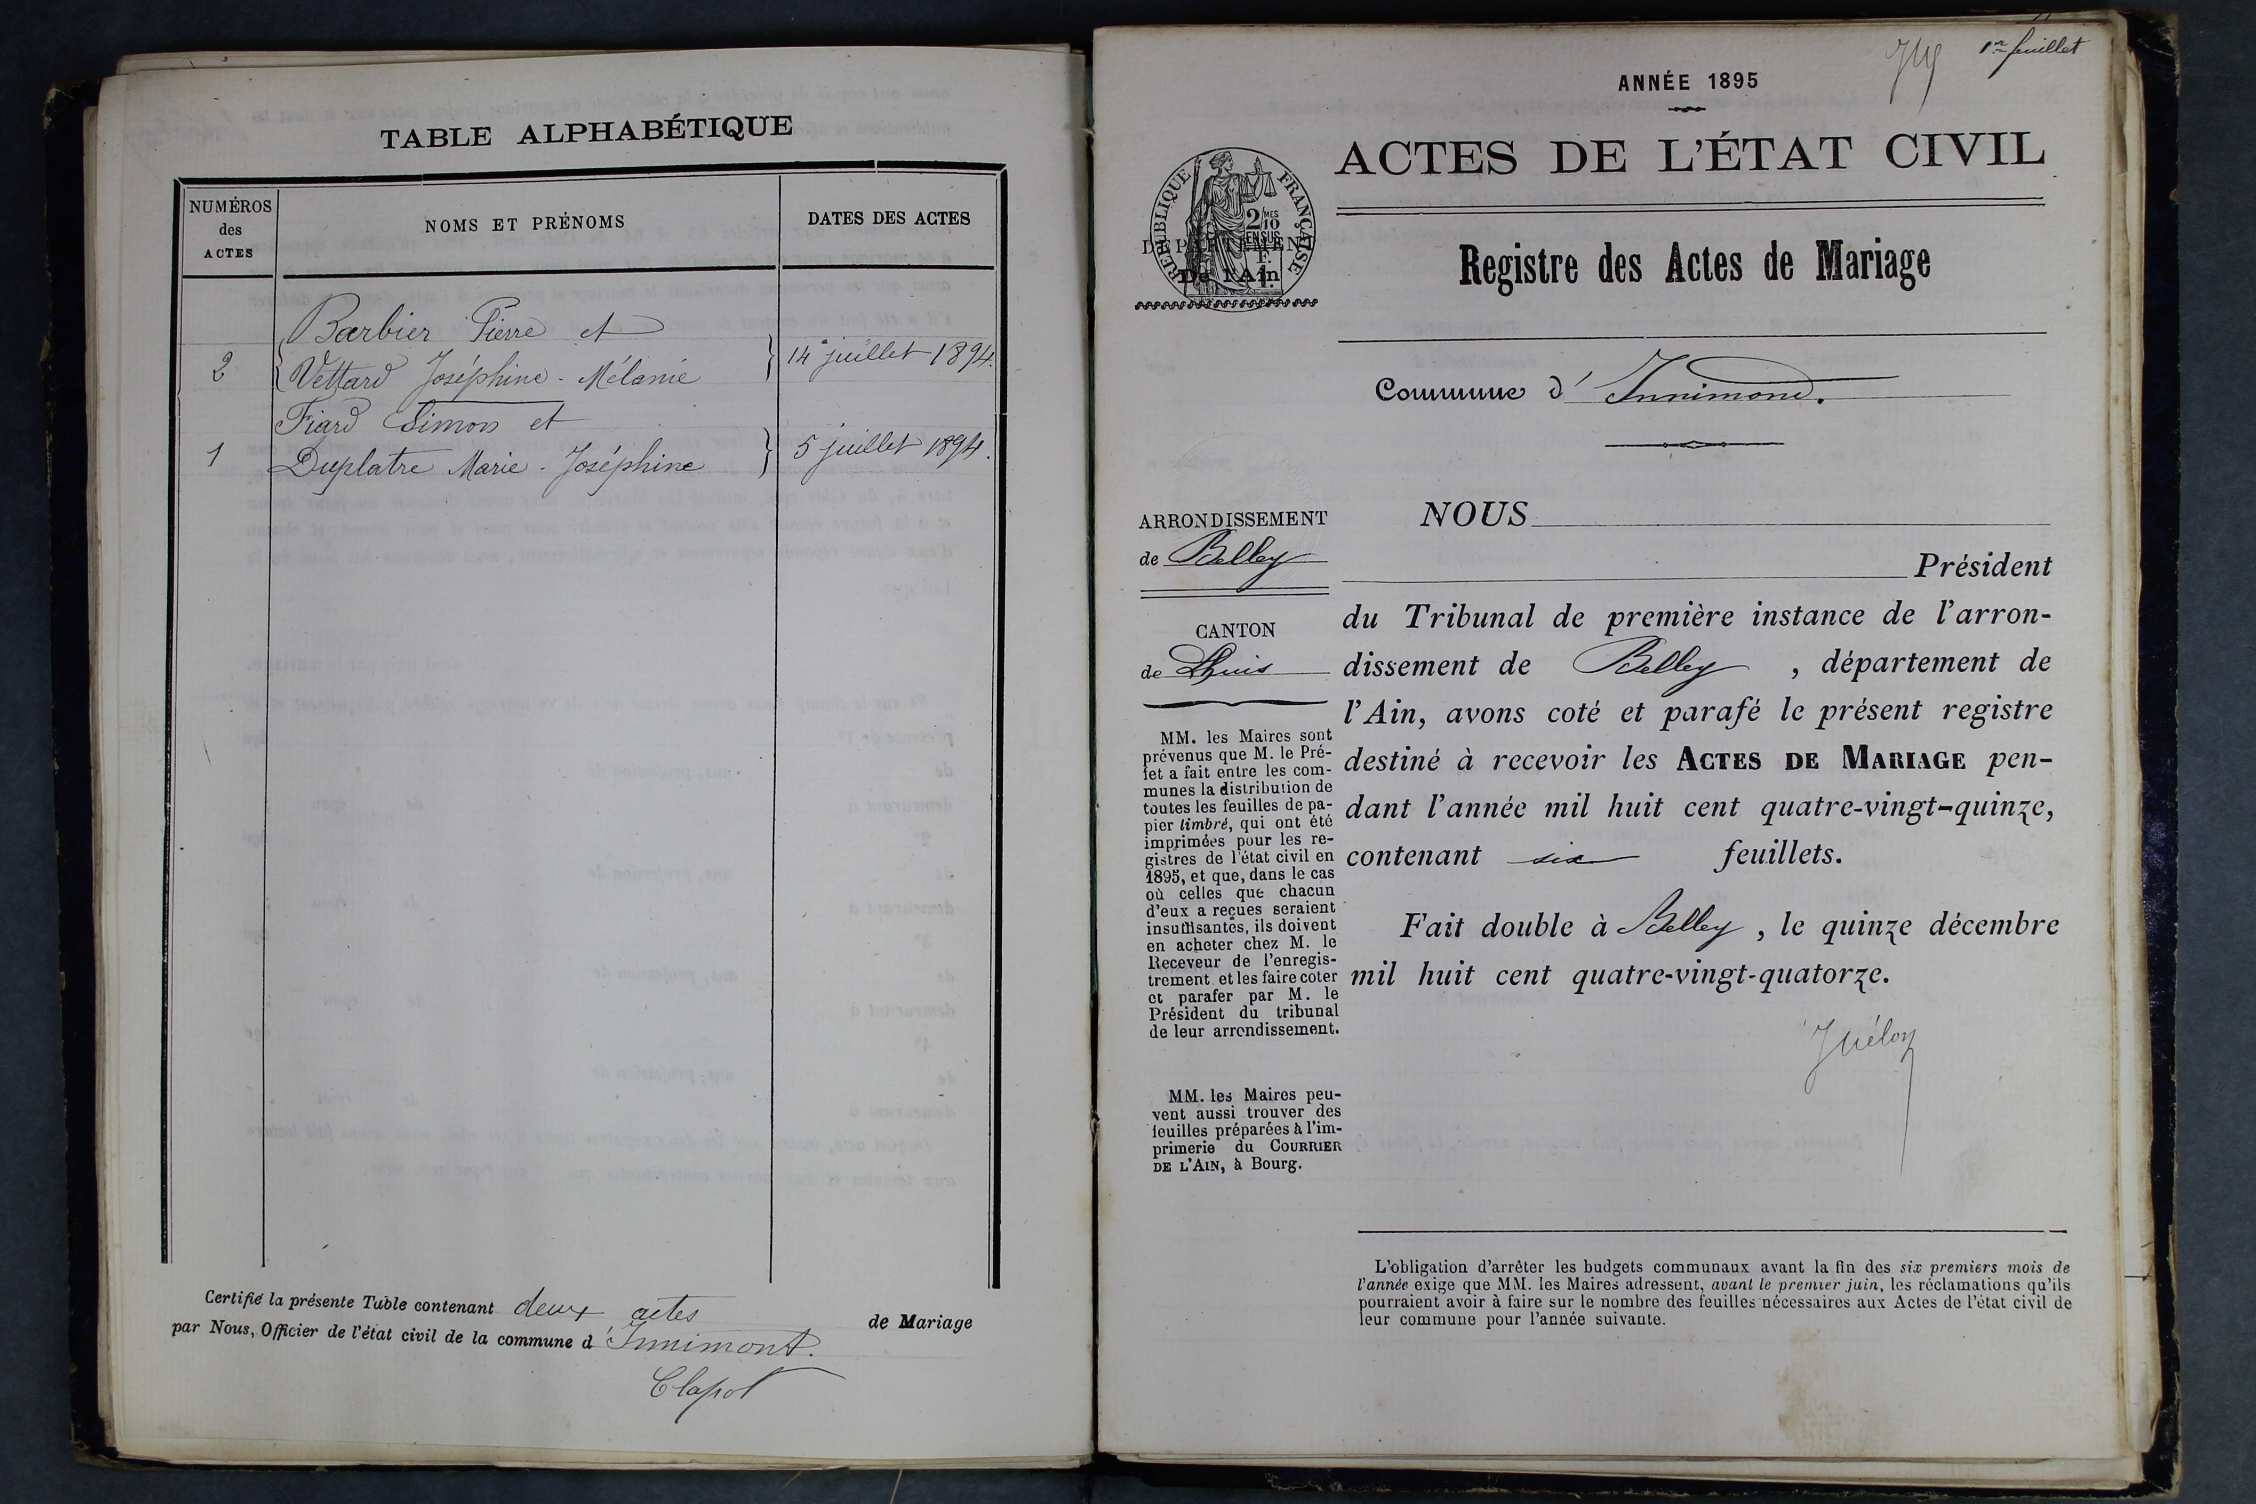 TABLE ALPHABÉTIQUE
NUMÉROS
des
ACTES
NOMS ET PRÉNOMS
DATES DES ACTES
Barbier Pierre et
2 Vettard Joséphine - Mélanie 14 juillet 1894.
Fiard Simon et
1 Duplatre Marie - Joséphine 5 juillet 1894.
Certifié la présente Table contenant deux actes de Mariage
par Nous, Officier de l'état civil de la commune d'Innimont.
Clapot
1er feuillet
ANNÉE 1895
ACTES DE L'ÉTAT CIVIL
RÉPUBLIQUE FRANÇAISE
2/10
MES
EN SUS
1 F.
DÉPARTEMENT
De l'Ain.
Registre des Actes de Mariage
Commune d'Innimond.
ARRONDISSEMENT
de Belley
CANTON
de Lhuis
MM. les Maires sont
prévenus que M. le Pré-
fet a fait entre les com-
munes la distribution de
toutes les feuilles de pa-
pier timbré, qui ont été
imprimées pour les re-
gistres de l'état civil en
1895, et que, dans le cas
où celles que chacun
d'eux a reçues seraient
insuffisantes, ils doivent
en acheter chez M. le
Receveur de l'enregis-
trement et les faire coter
et parafer par M. le
Président du tribunal
de leur arrondissement.
MM. les Maires peu-
vent aussi trouver des
feuilles préparées à l'im-
primerie du COURRIER
DE L'AIN, à Bourg.
NOUS
Président
du Tribunal de première instance de l'arron-
dissement de Belley , département de
l'Ain, avons coté et parafé le présent registre
destiné à recevoir les ACTES DE MARIAGE pen-
dant l'année mil huit cent quatre-vingt-quinze,
contenant six feuillets.
Fait double à Belley , le quinze décembre
mil huit cent quatre-vingt-quatorze.
L'obligation d'arrêter les budgets communaux avant la fin des six premiers mois de
l'année exige que MM. les Maires adressent, avant le premier juin, les réclamations qu'ils
pourraient avoir à faire sur le nombre des feuilles nécessaires aux Actes de l'état civil de
leur commune pour l'année suivante.